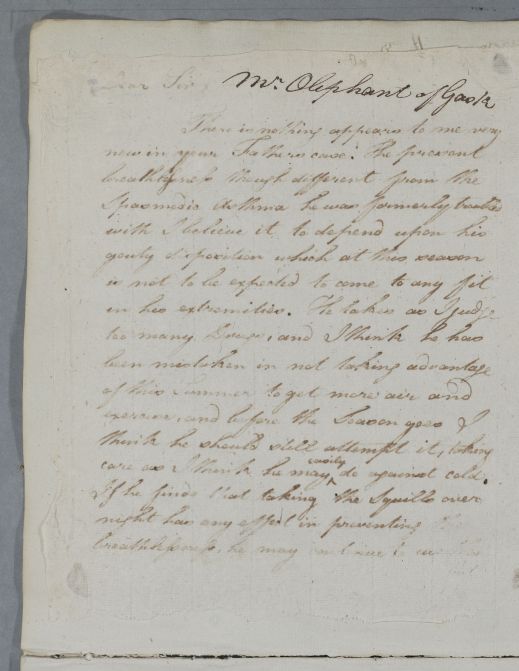 Dear Sir, Mr. Oliphant of Gask
There is nothing appears to me very
new in your Fathers case. The present
breathlessness though different from the
Spasmodic Asthma he was formerly troubled
with I believe it to depend upon his
gouty disposition which at this season
is not to be expected to come to any fit
in his extremities. He takes as I judge
too many Drugs, and I think he has
been mistaken in not taking advantage
of this Summer to get more air and
exercise, and before the Season goes I
think he should still attempt it, taking
care as I think he may easily do against cold.
If he finds that taking the Squills over
night has any effect in preventing
breathlessness, he may continue to use